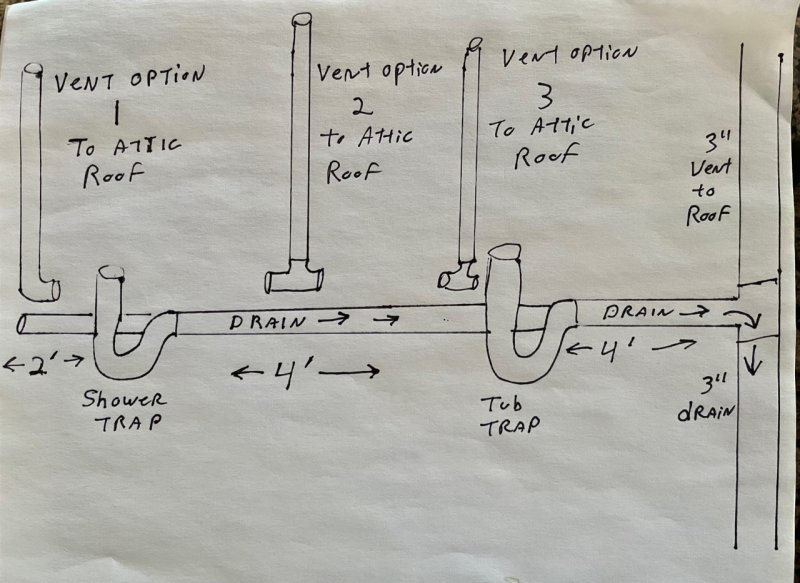 VENT OPTION
1
To ATTIC
Roof
Vent option
2
to Attic
Roof
Vent option
3
To Attic
Roof
3"
Vent
to
Roof
DRAIN → →
DRAIN →
← 2' →
← 4' →
← 4' →
Shower
TRAP
Tub
TRAP
3"
drAIN